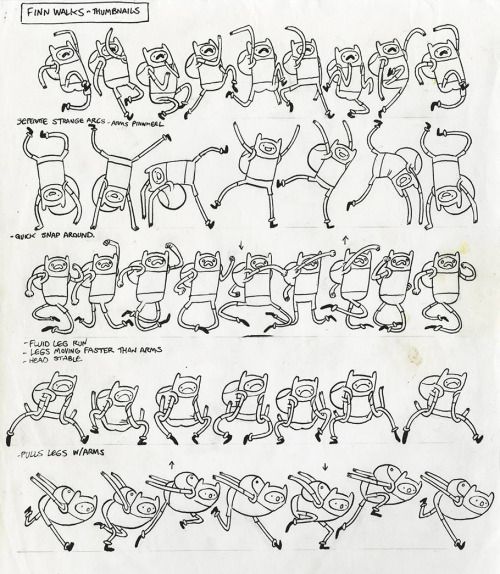 FINN WALKS - THUMBNAILS
DEFINITE STRANGE ARCS - ARMS PINWHEEL
- QUICK SNAP AROUND.
- FLUID LEG RUN
- LEGS MOVING FASTER THAN ARMS
- HEAD STABLE.
- PULLS LEGS W/ARMS